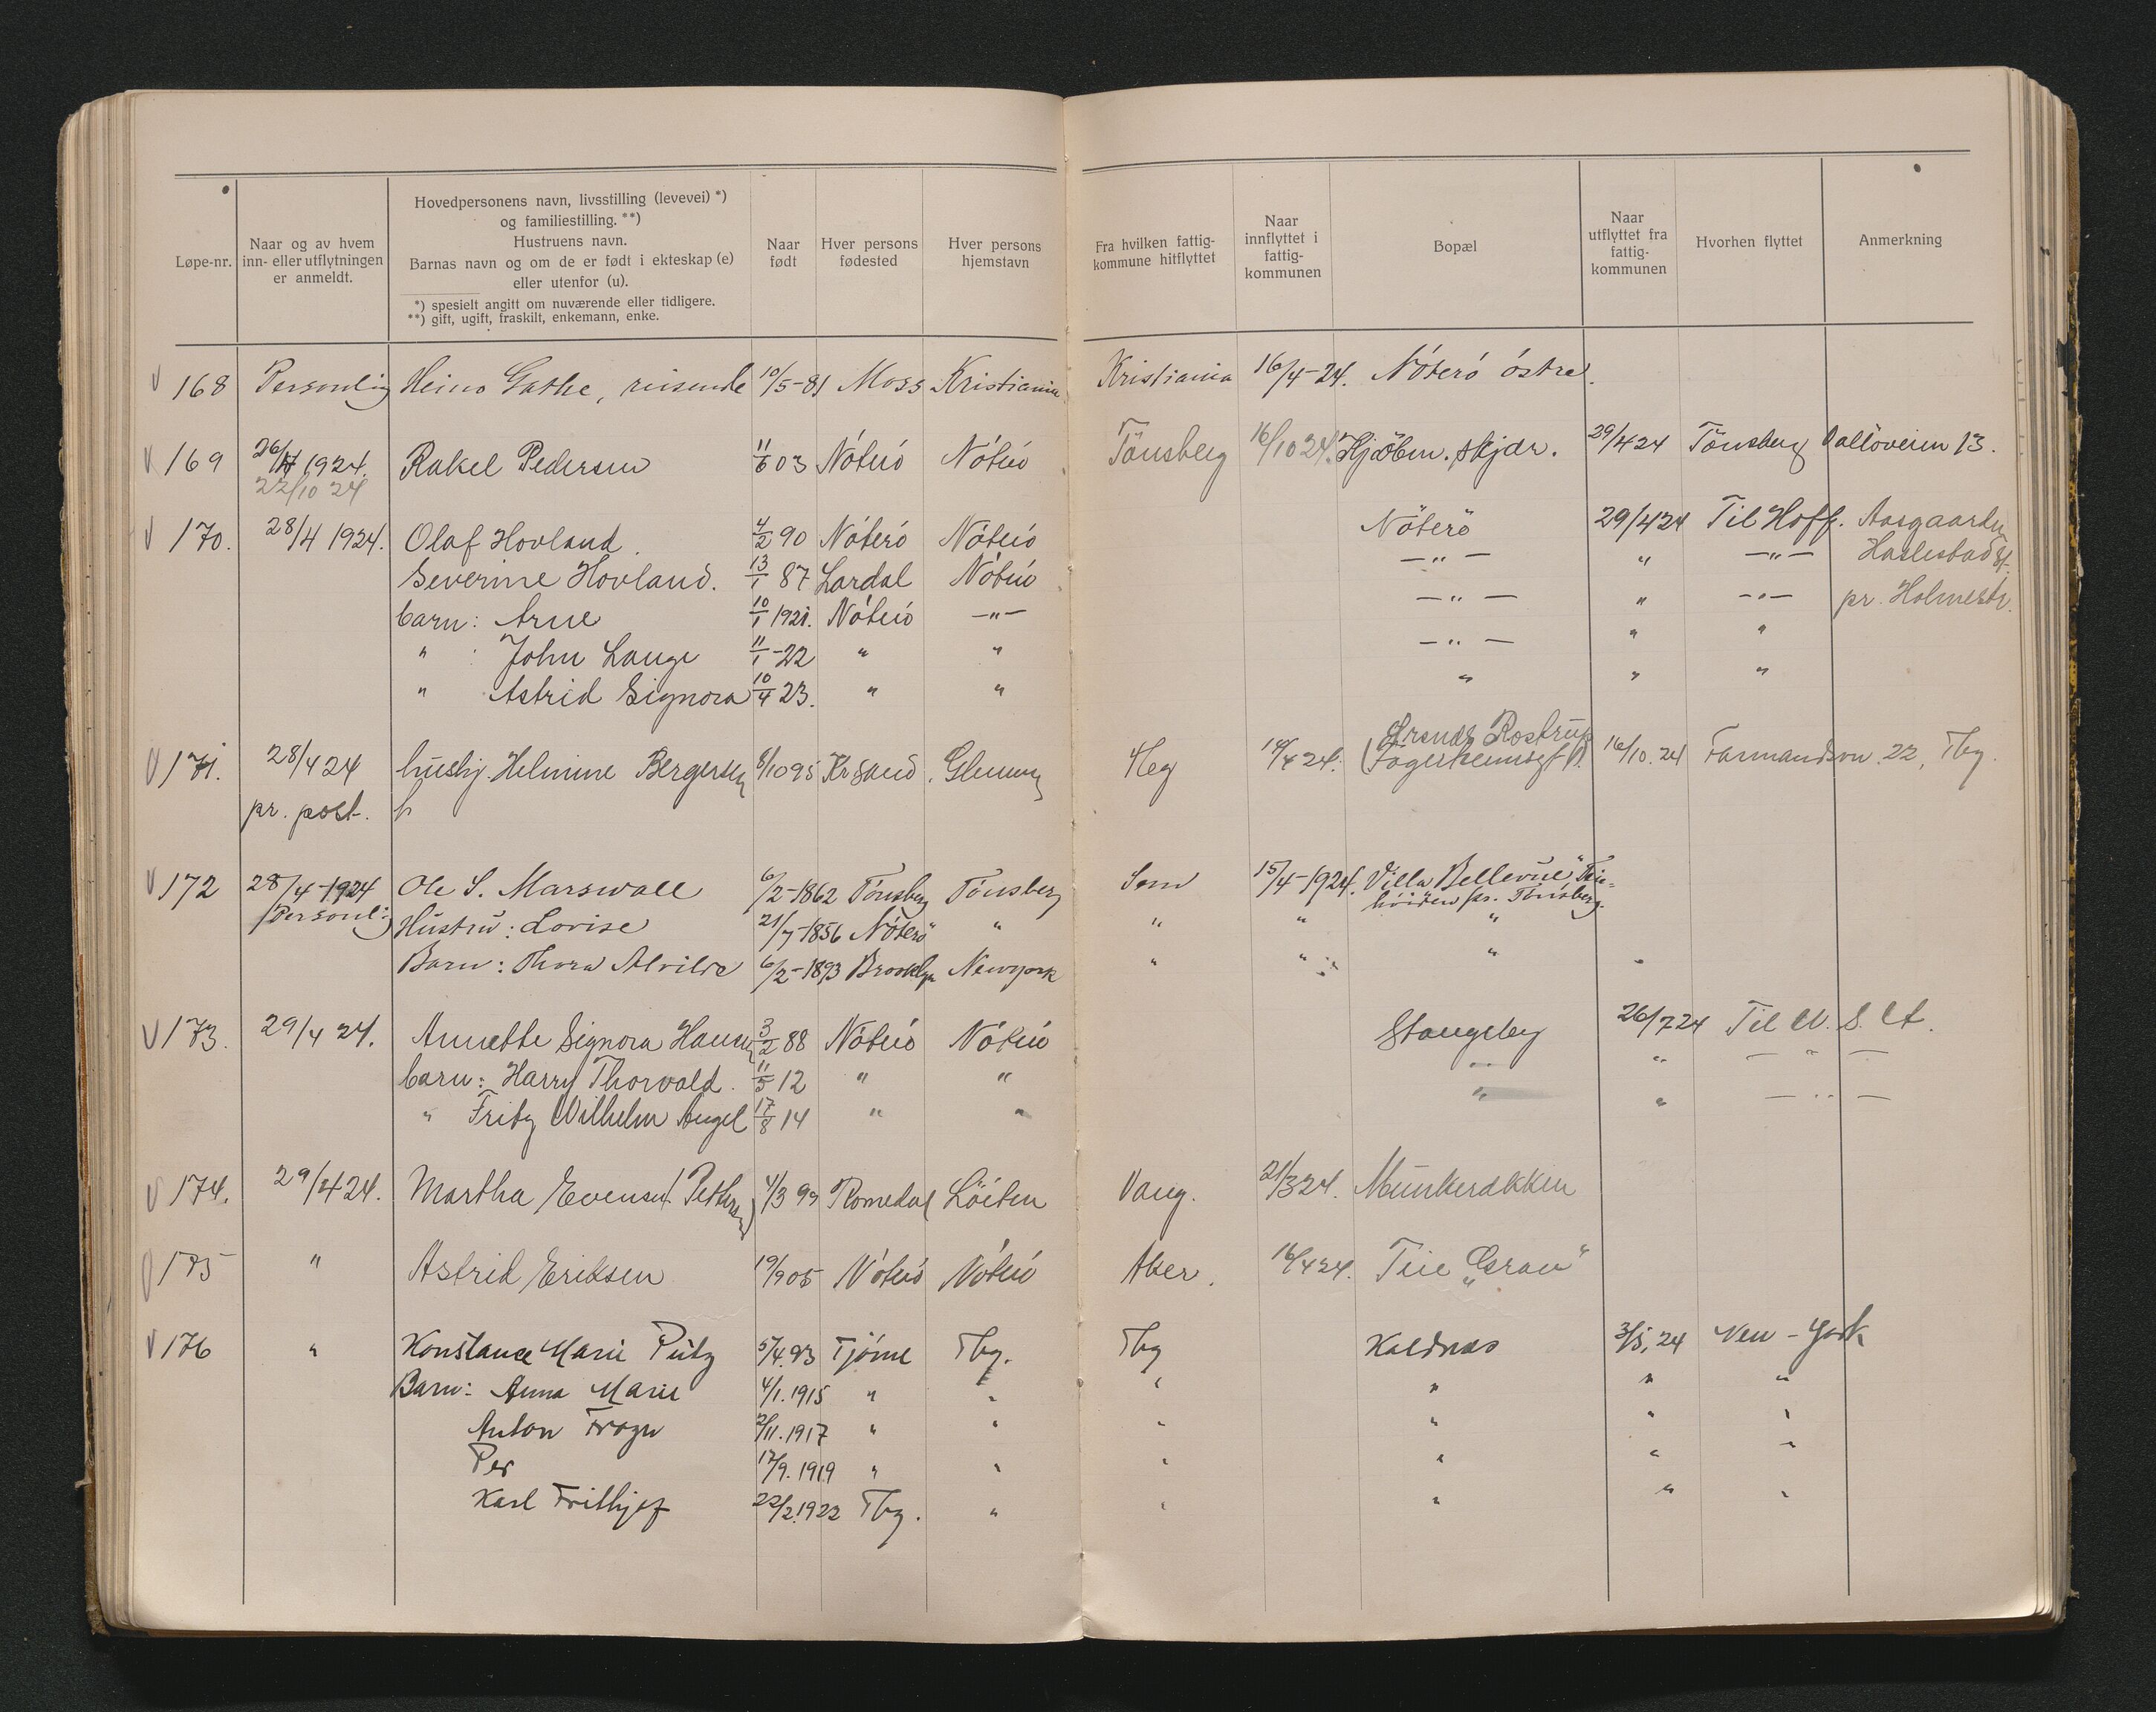 Løpe-nr.
Naar og av hvem
inn- eller utflytningen
er anmeldt.
Hovedpersonens navn, livsstilling (levevei) *)
og familiestilling. **)
Hustruens navn.
Barnas navn og om de er født i ekteskap (e)
eller utenfor (u).
*) spesielt angitt om nuværende eller tidligere.
**) gift, ugift, fraskilt, enkemann, enke.
Naar
født
Hver persons
fødested
Hver persons
hjemstavn
Fra hvilken fattig-
kommune hitflyttet
Naar
innflyttet i
fattig-
kommunen
Bopæl
Naar
utflyttet fra
fattig-
kommunen
Hvorhen flyttet
Anmerkning
V 168 Personlig Heino Gathe, reisende 10/5-81 Moss Kristiania Kristiania 16/4-24. Nóteró óstre.
V 169 26/4 1924. Rakel Pedersen 11/6 03 Nóteró Nóteró Tönsberg 16/10 24. Kjöbm. Skjær. 29/4 24 Tönsberg Valløveien 13.
22/10 24
V 170. 28/4 1924. Olaf Hovland. 4/2 90 Nóteró Nóteró Nöterö 29/4 24 Til Hoff. Aasgaarden
Severine Hovland. 13/1 87 Lardal Nóteró — " — " — " — Haslestad st.
barn: Arne 10/1 1921. Nóteró — " — — " — " — " — pr. Holmestr.
" : John Lauge 11/1 -22 " " — " — " "
" : Astrid Signora 10/4 23. " " " " "
V 171. 28/4 24 husby. Helmine Bergersen 8/10 95 Kr.sand. Glemmen Heg 14/4 24. Arends Rostrup 16/10. 24 Farmandsvn. 22, Tbg.
(Fagerheimsgt.
pr. post.
V 172 28/4-1924 Ole S. Marswall 6/2-1862 Tönsberg Tönsberg Sem 15/4-1924. "Villa Bellevue" Teie-
høiden pr. Tönsberg.
Personlig Hustru: Lovise 21/7-1856 Nöterö " " " "
Barn: Thora Alvilde 6/2-1893 Brooklyn Newyork " " "
V 173. 29/4 24. Annette Signora Hansen 3/2 88 Nóteró Nóteró Stangeby 26/7 24 Til U. S. A.
barn: Harry Thorvald. 11/5 12 " " " " — " —
" Fritz Wilhelm Angel 17/8 14 " " " " — " —
V 174. 29/4 24. Martha Evensen (f. Pettersen) 4/3 99 Romedal Löiten Vang. 21/3 24. Munkerekken
V 175 " Astrid Eriksen 19/9 05 Nóteró Nóteró Aker. 16/4 24. Teie "Gran"
V 176 " Konstance Marie Pütz 5/4. 93 Tjöme Tbg. Tbg Kaldnes 3/5, 24 New-York
Barn: Anna Marie 4/1. 1915 " " " " " "
Anton Trogn 2/11. 1917 " " " " " "
Per 17/9. 1919 " " " " " "
Karl Frithjof 22/2. 1922 Tbg. " " " " "